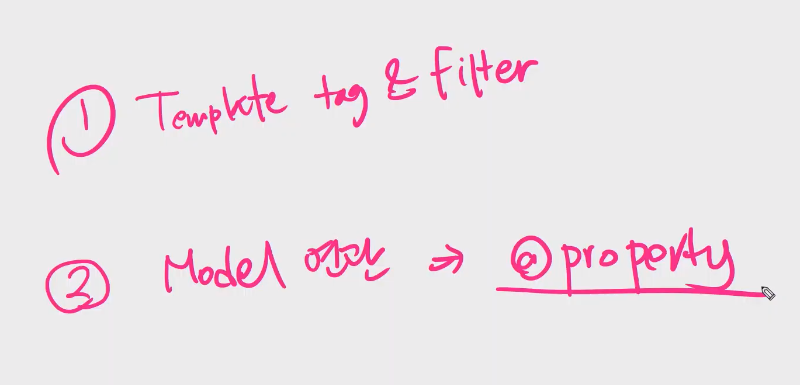 ① Template tag & Filter
② Model 연산 → @property